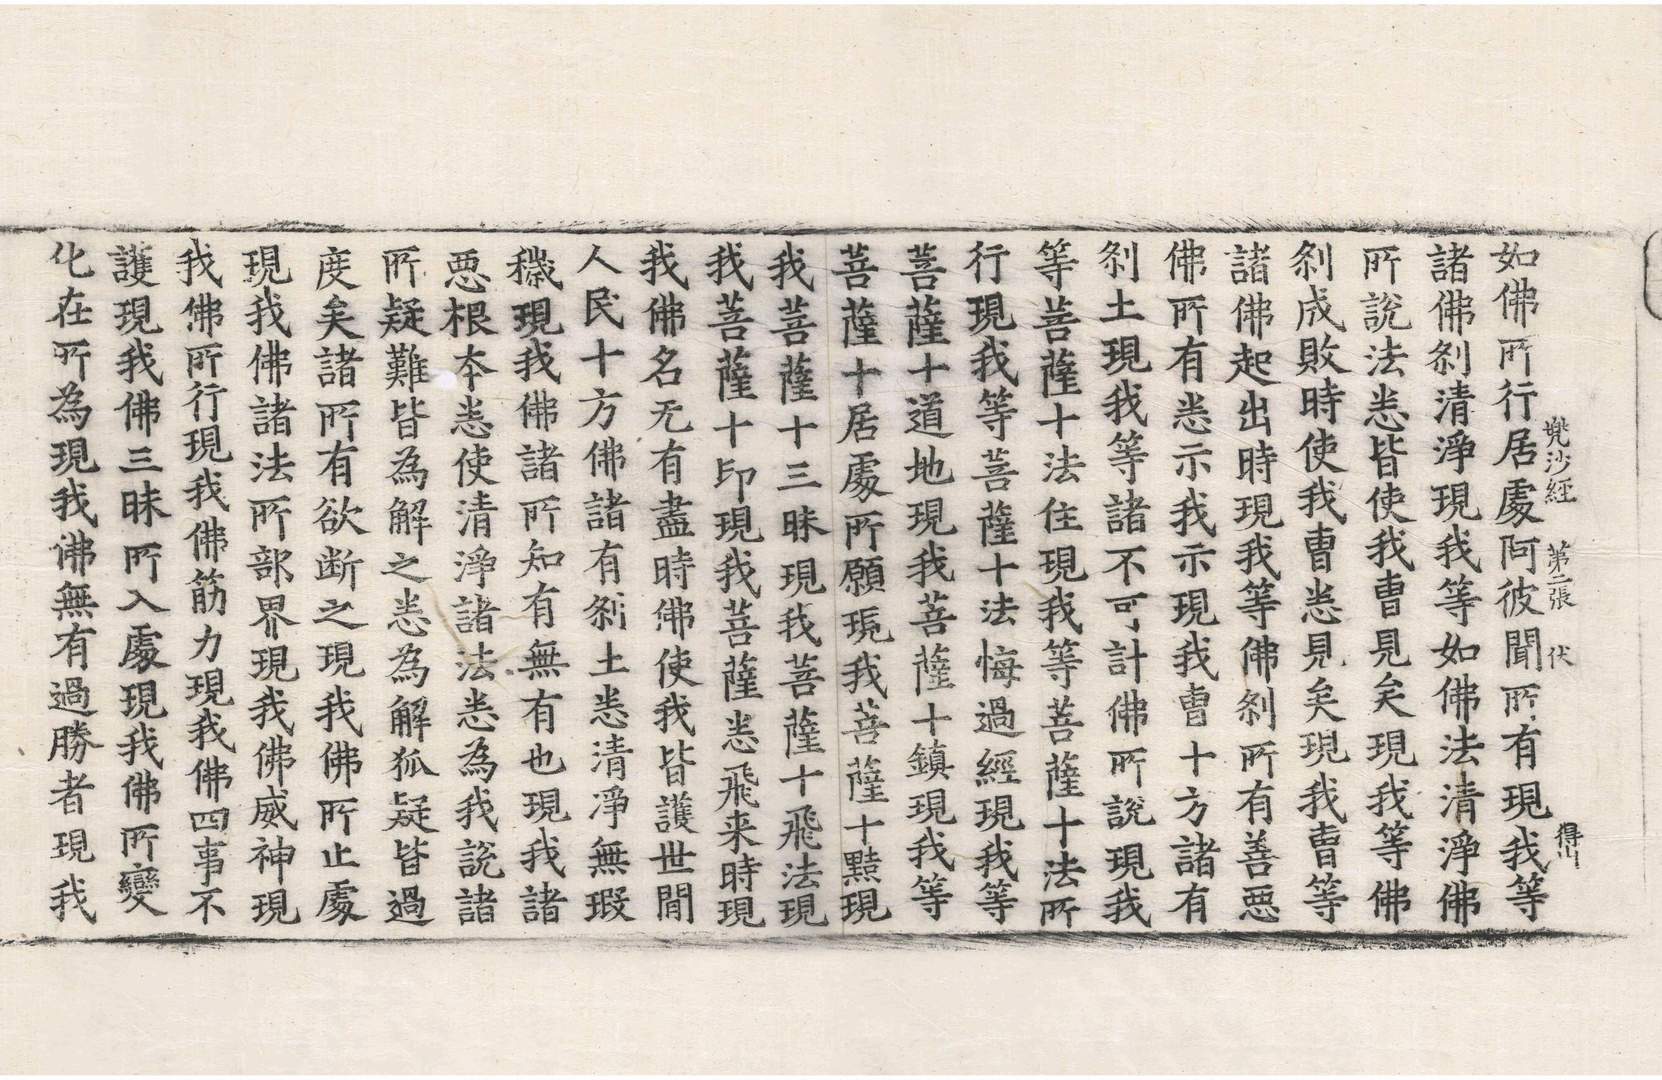 兜沙経 第二張 伏 得山
如佛所行居處阿彼聞所有現我等
諸佛刹清淨現我等如佛法清淨佛
所說法悉皆使我曹見矣現我等佛
刹成敗時使我曹悉見矣現我曹等
諸佛起出時現我等佛刹所有善惡
佛所有悉示我示現我曹十方諸有
刹土現我等諸不可計佛所說現我
等菩薩十法住現我等菩薩十法所
行現我等菩薩十法悔過經現我等
菩薩十道地現我菩薩十鎮現我等
菩薩十居處所願現我菩薩十黠現
我菩薩十三昧現我菩薩十飛法現
我菩薩十印現我菩薩悉飛来時現
我佛名无有盡時佛使我皆護世間
人民十方佛諸有刹土悉清淨無瑕
穢現我佛諸所知有無有也現我諸
惡根本悉使清淨諸法悉為我說諸
所疑難皆為解之悉為解狐疑皆過
度矣諸所有欲断之現我佛所止處
現我佛諸法所部界現我佛威神現
我佛所行現我佛筋力現我佛四事不
護現我佛三昧所入處現我佛所變
化在所為現我佛無有過勝者現我